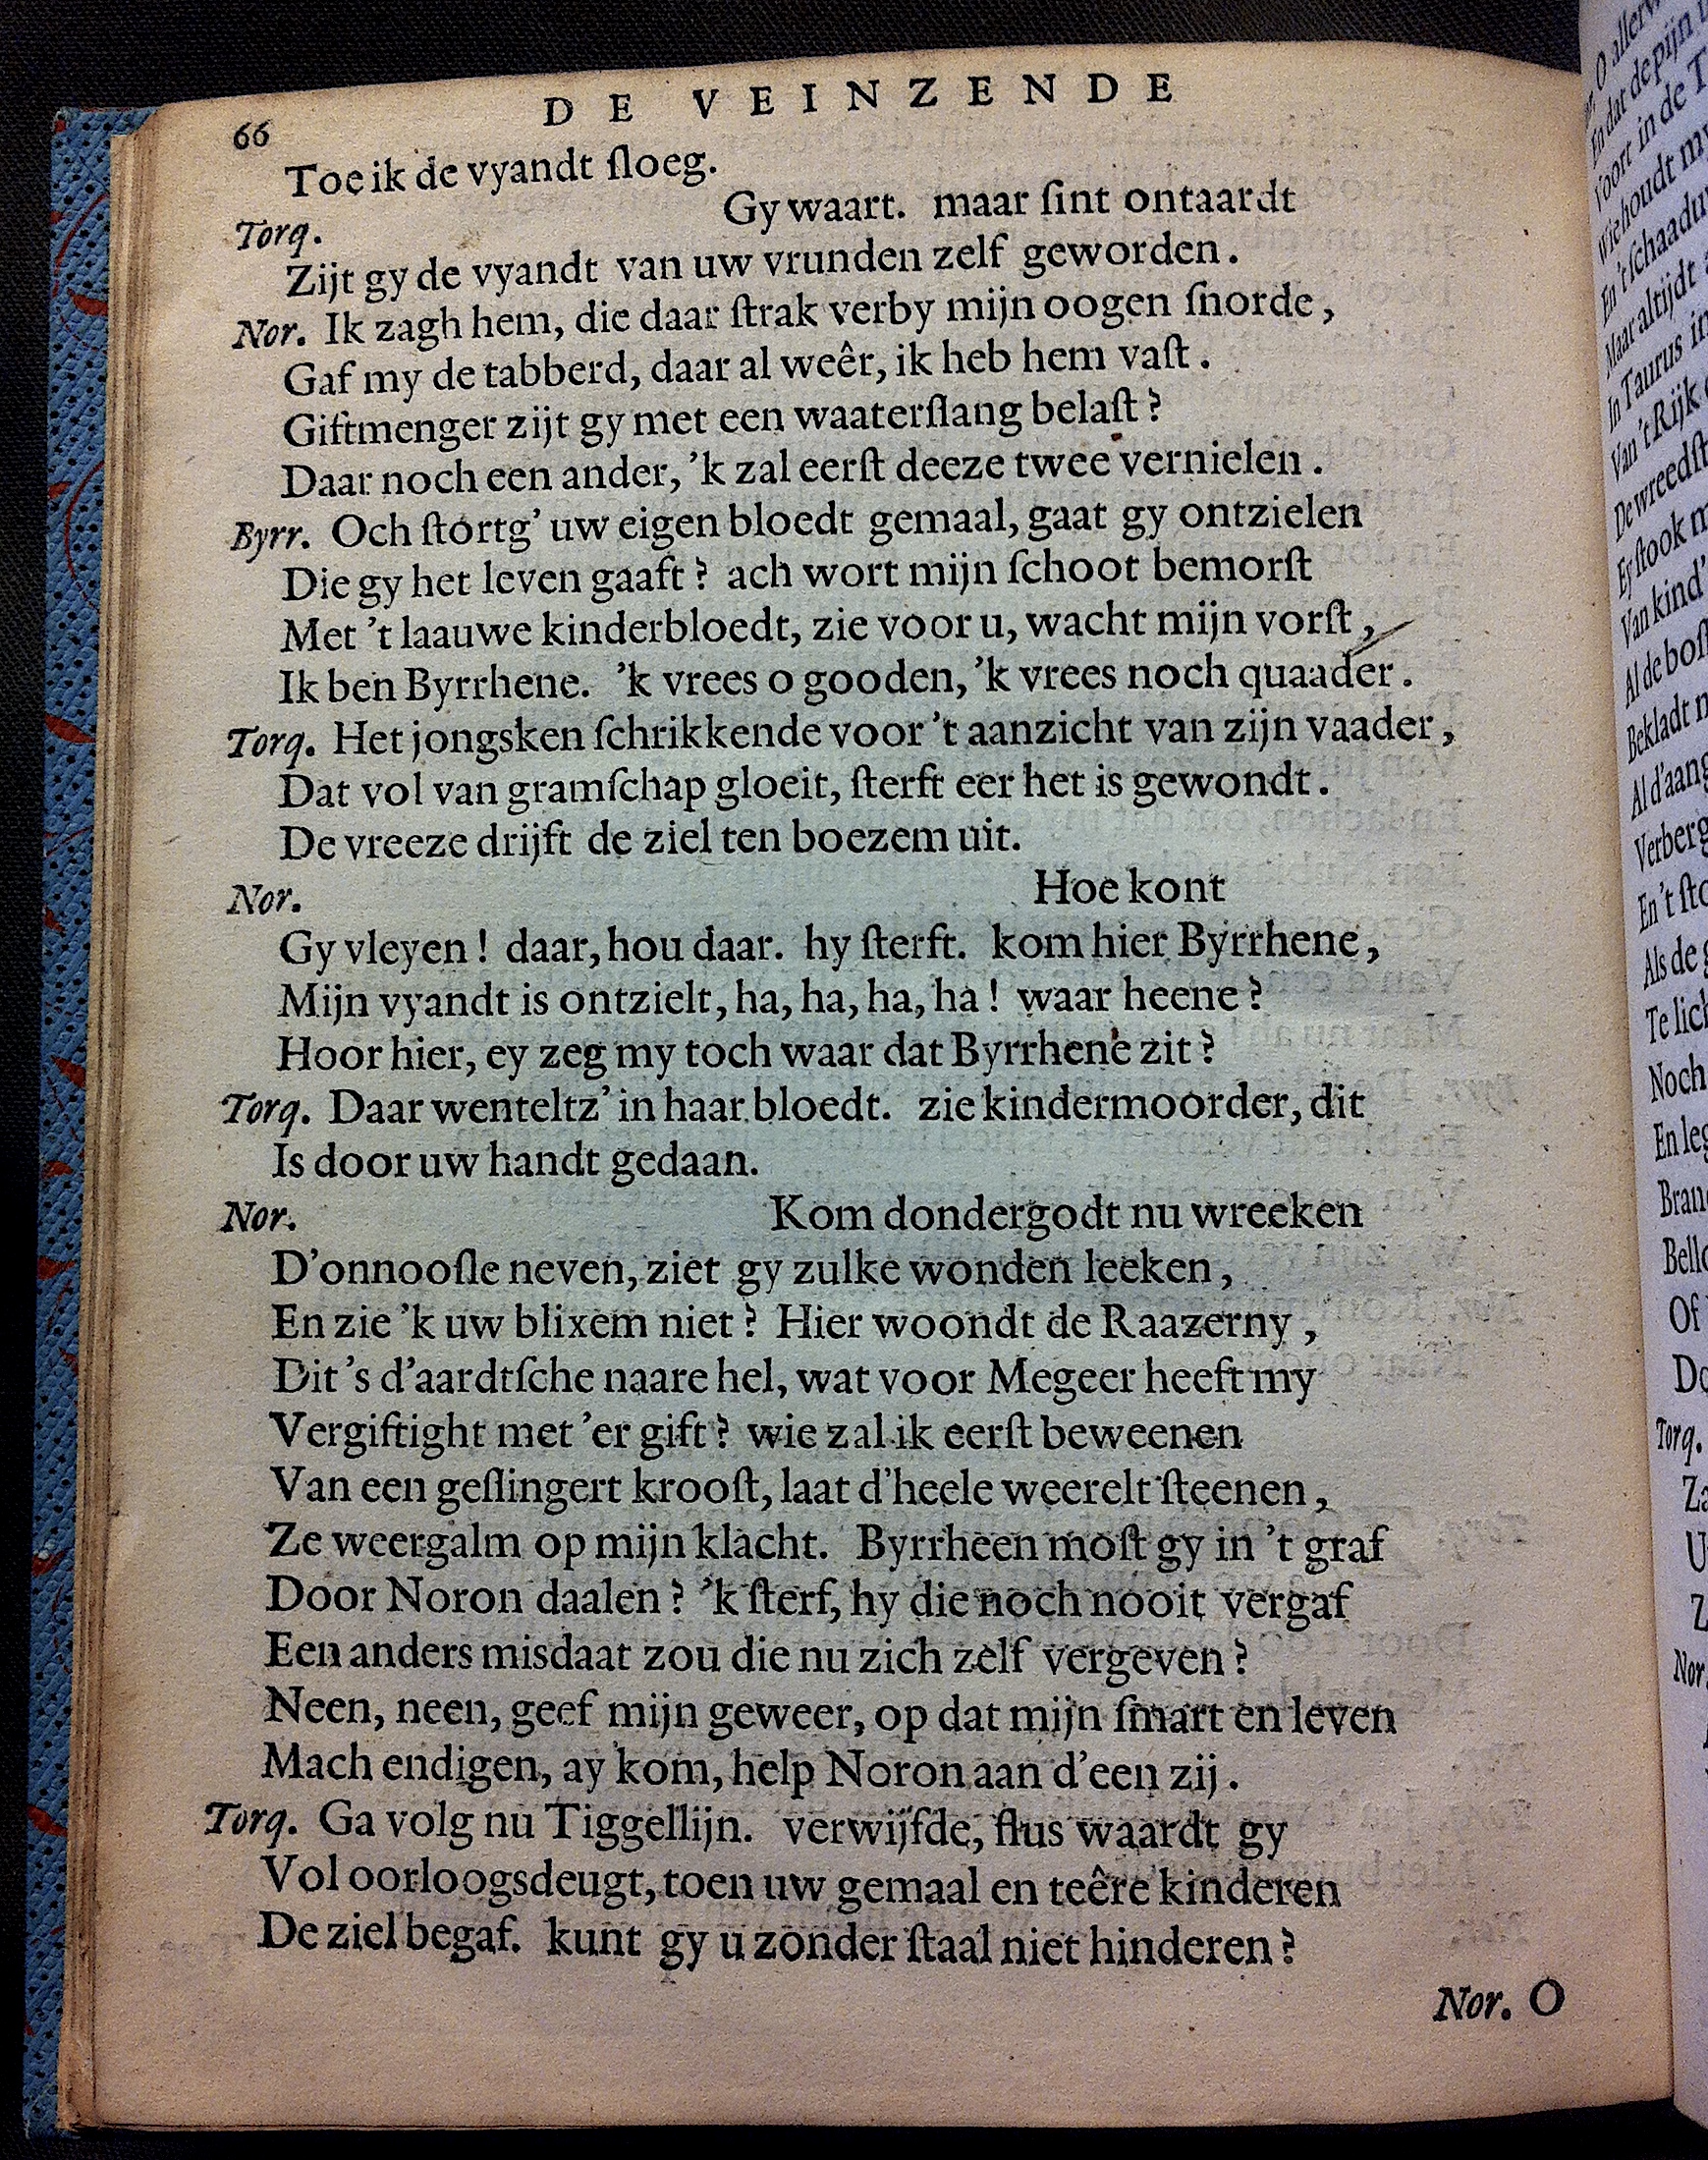 DE VEINZENDE
66
Toe ik de vyandt ſloeg.
Torq. Gy waart. maar ſint ontaardt
Zijt gy de vyandt van uw vrunden zelf geworden.
Nor. Ik zagh hem, die daar ſtrak verby mijn oogen ſnorde,
Gaf my de tabberd, daar al weêr, ik heb hem vaſt.
Giftmenger zijt gy met een waaterſlang belaſt?
Daar noch een ander, 'k zal eerſt deeze twee vernielen.
Byrr. Och ſtortg' uw eigen bloedt gemaal, gaat gy ontzielen
Die gy het leven gaaft? ach wort mijn ſchoot bemorſt
Met 't laauwe kinderbloedt, zie voor u, wacht mijn vorſt,
Ik ben Byrrhene. 'k vrees o gooden, 'k vrees noch quaader.
Torq. Het jongsken ſchrikkende voor 't aanzicht van zijn vaader,
Dat vol van gramſchap gloeit, ſterft eer het is gewondt.
De vreeze drijft de ziel ten boezem uit.
Nor. Hoe kont
Gy vleyen! daar, hou daar. hy ſterft. kom hier Byrrhene,
Mijn vyandt is ontzielt, ha, ha, ha, ha! waar heene?
Hoor hier, ey zeg my toch waar dat Byrrhene zit?
Torq. Daar wenteltz' in haar bloedt. zie kindermoorder, dit
Is door uw handt gedaan.
Nor. Kom dondergodt nu wreeken
D'onnooſle neven, ziet gy zulke wonden leeken,
En zie 'k uw blixem niet? Hier woondt de Raazerny,
Dit 's d'aardtſche naare hel, wat voor Megeer heeft my
Vergiftight met 'er gift? wie zal ik eerſt beweenen
Van een geſlingert krooſt, laat d'heele weerelt ſteenen,
Ze weergalm op mijn klacht. Byrrheen moſt gy in 't graf
Door Noron daalen? 'k ſterf, hy die noch nooit vergaf
Een anders misdaat zou die nu zich zelf vergeven?
Neen, neen, geef mijn geweer, op dat mijn ſmart en leven
Mach endigen, ay kom, help Noron aan d'een zij.
Torq. Ga volg nu Tiggellijn. verwijfde, flus waardt gy
Vol oorloogsdeugt, toen uw gemaal en teêre kinderen
De ziel begaf. kunt gy u zonder ſtaal niet hinderen?
Nor. O